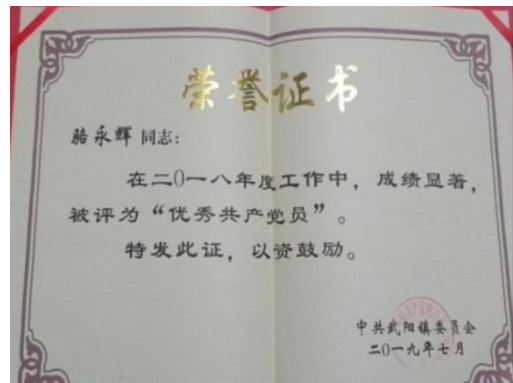 荣誉证书
骆永辉 同志:
在二〇一八年度工作中，成绩显著，
被评为“优秀共产党员”。
特发此证，以资鼓励。
中共武阳镇委员会
二〇一九年七月